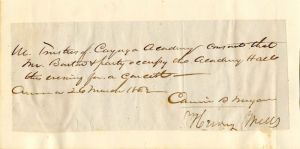 We Trustees of Cayuga Academy consent that
Mr. Barton & party occupy the Academy Hall
this evening for a Concert
Aurora 26 March 1862
Edwin B Morgan
Henry Wells